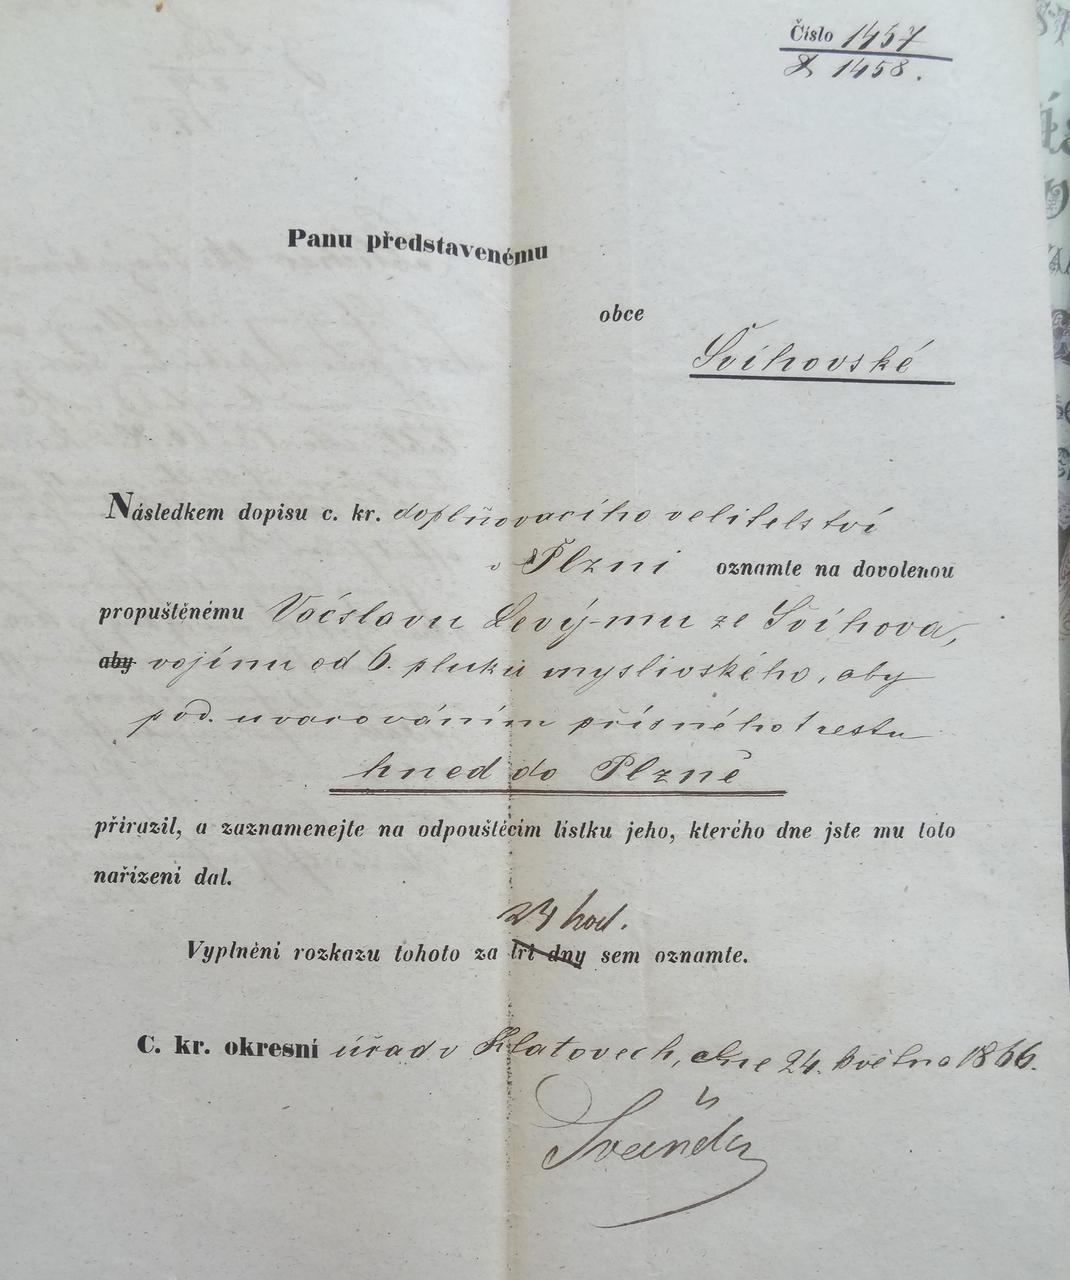 Číslo 1457
& 1458.
Panu představenému
obce
Švihovské
Následkem dopisu c. kr. doplňovacího velitelství
v Plzni oznamte na dovolenou
propuštěnému Václavu Levý-mu ze Švihova,
aby vojínu od 6. pluku mysliveského, aby
pod uvarováním přísného trestu
hned do Plzně
přirazil, a zaznamenejte na odpouštěcím lístku jeho, kterého dne jste mu toto
nařízení dal.
24 hod.
Vyplnění rozkazu tohoto za tři dny sem oznamte.
C. kr. okresní úřad v Klatovech, dne 24. května 1866.
Švanda